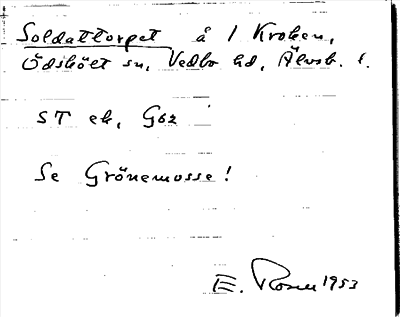 Soldattorpet å 1 Kroken,
Ödskölt sn, Vedbo hd, Älvsb. l.
ST ek, G62
Se Grönemosse!
E. Rosen 1953